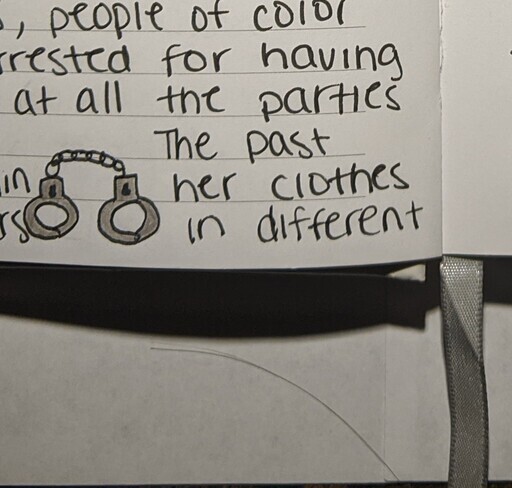 , people of color
rrested for having
at all the parties
The past
in her clothes
rs in different